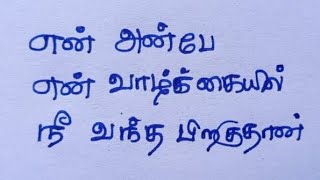 என் அன்பே
என் வாழ்க்கையில்
நீ வந்த பிறகுதான்